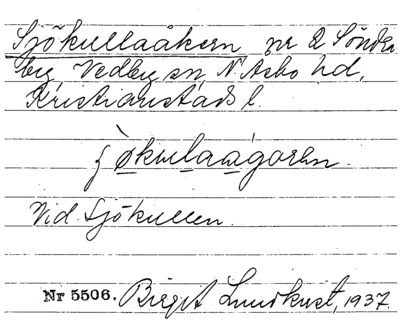 Sjökullaåkern nr 2 Sönder
by Vedby sn, N. Asbo hd,
Kristianstads l.
ʃøkulaågorẹn.
Vid Sjökullen.
Nr 5506. Birgit Lundkvist, 1937.